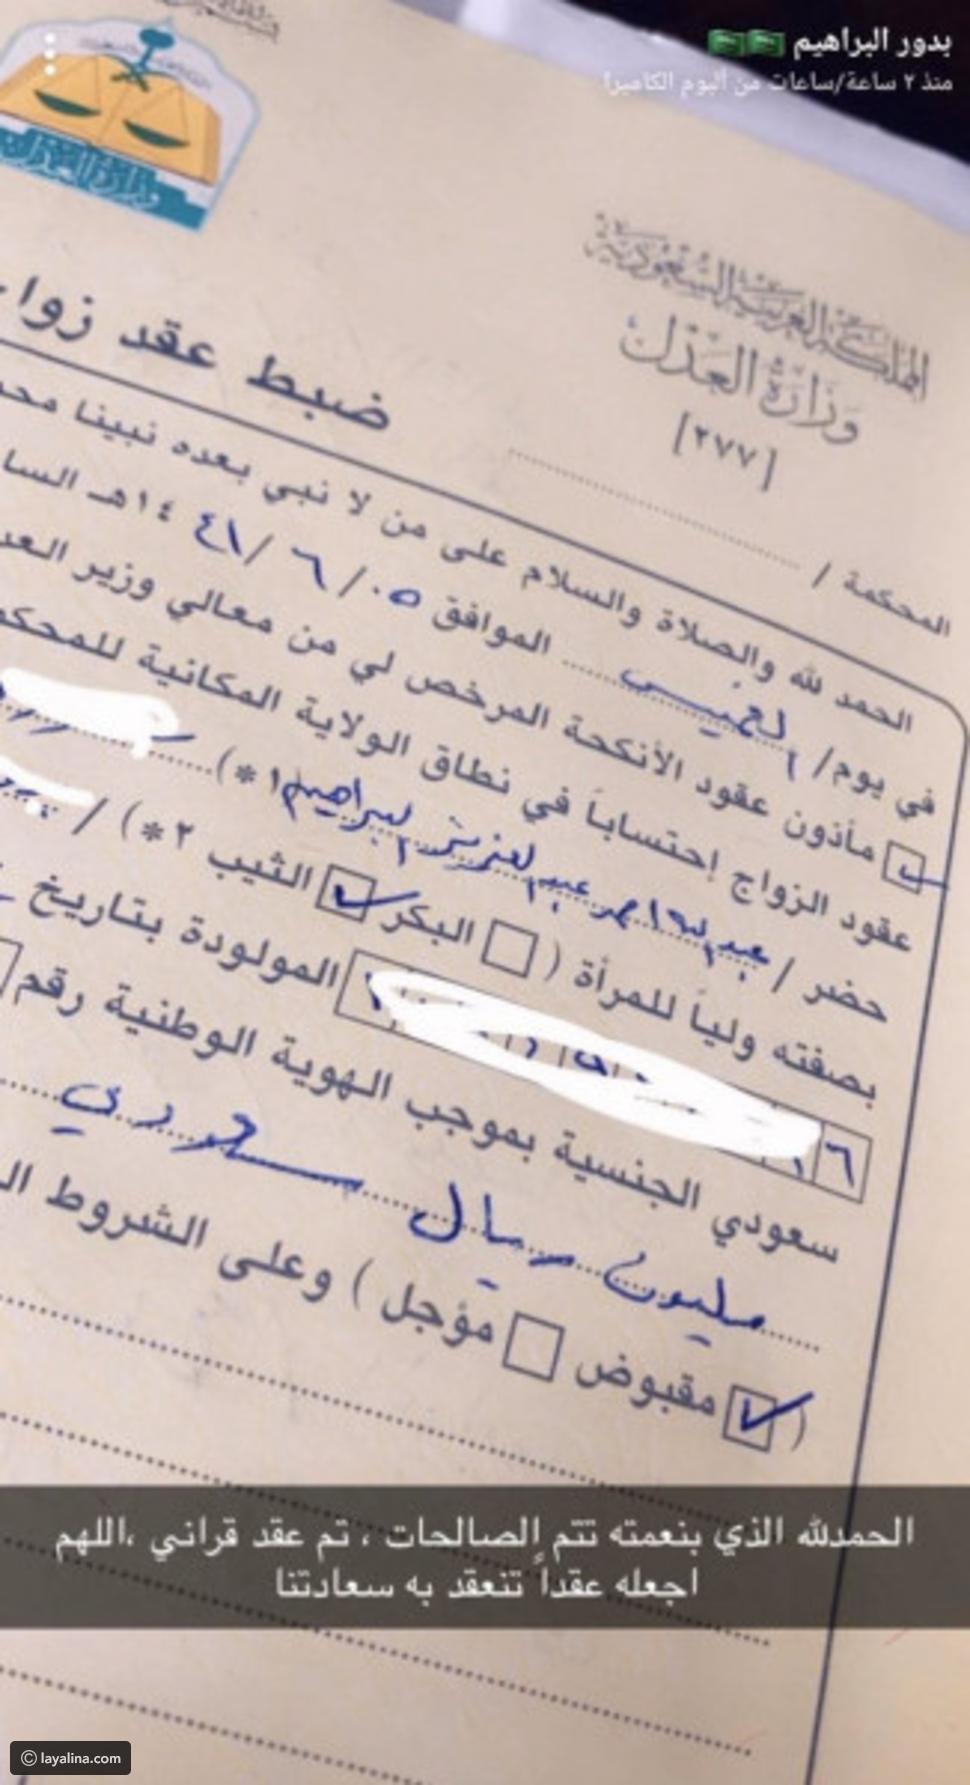 بدور البراهيم 🇸🇦🇸🇦
منذ ٢ ساعة/ساعات من ألبوم الكاميرا
وزارة العدل
المملكة العربية السعودية
وزارة العدل
[٢٧٧]
المحكمة /
ضبط عقد زواج
الحمد لله والصلاة والسلام على من لا نبي بعده نبينا محمد
في يوم / الخميس الموافق ٠٥ / ٦ / ١٤٤١هـ
مأذون عقود الأنكحة المرخص لي من معالي وزير
عقود الزواج إحتساباً في نطاق الولاية المكانية
حضر / عبد العزيز البراهيم (*١
بصفته ولياً للمرأة ( البكر الثيب ٢*) /
المولودة بتاريخ
سعودي الجنسية بموجب الهوية الوطنية رقم
مليون ريال سعودي
( مقبوض مؤجل ) وعلى الشروط
الحمدلله الذي بنعمته تتم الصالحات ، تم عقد قراني ،اللهم
اجعله عقداً تنعقد به سعادتنا
© layalina.com